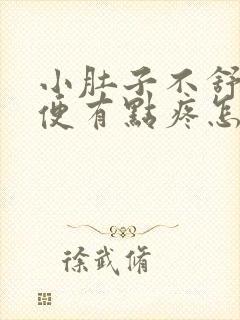 小肚子不舒
便有點疼怎
徐武脩